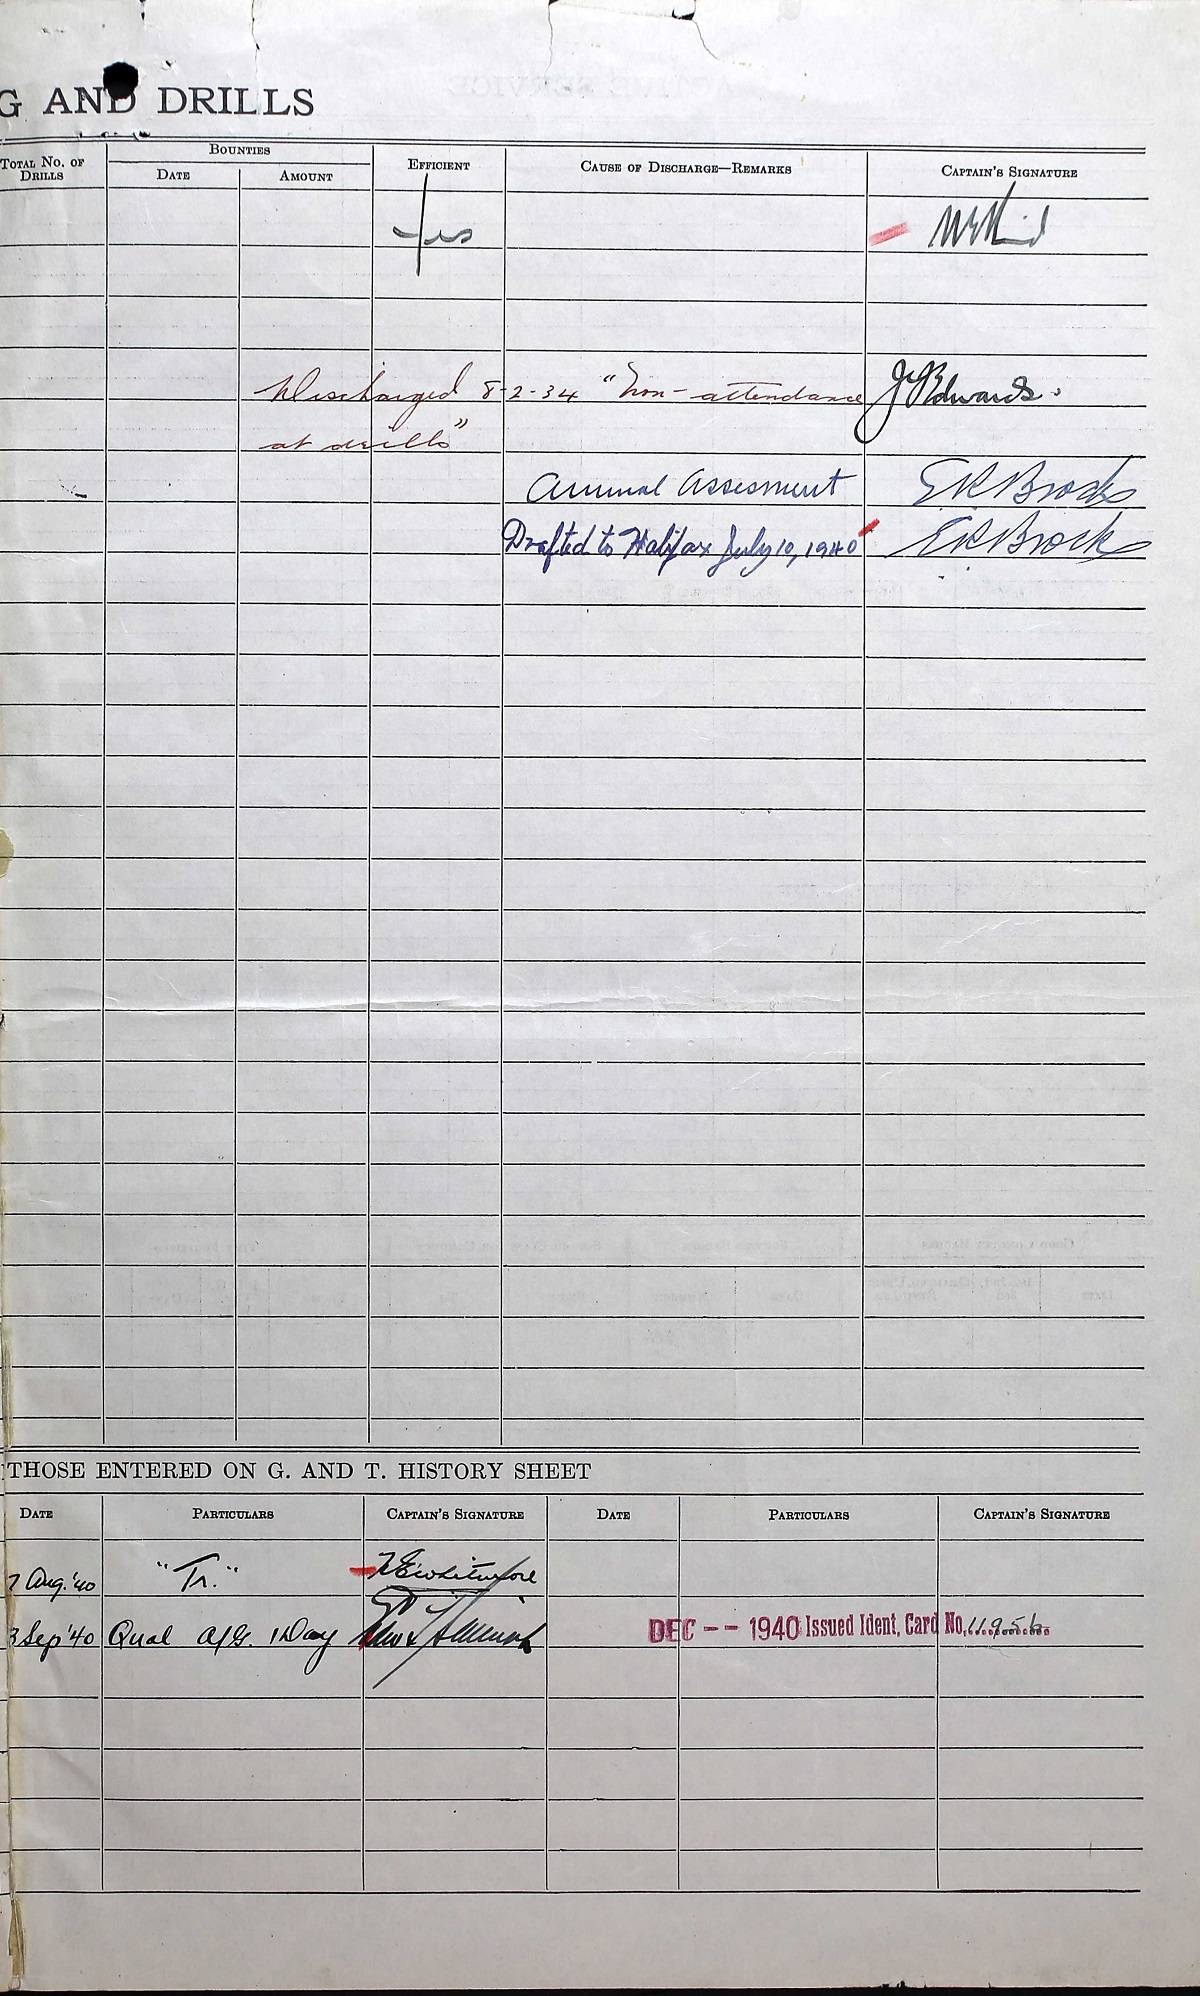 G AND DRILLS
TOTAL NO. OF DRILLS
BOUNTIES
DATE
AMOUNT
EFFICIENT
CAUSE OF DISCHARGE—REMARKS
CAPTAIN'S SIGNATURE
Yes
Discharged 8-2-34 "Non-attendance
JPEdwards.
at drills"
Annual Assessment
ERBrock
Drafted to Halifax July 10, 1940
ERBrock
THOSE ENTERED ON G. AND T. HISTORY SHEET
DATE
PARTICULARS
CAPTAIN'S SIGNATURE
DATE
PARTICULARS
CAPTAIN'S SIGNATURE
7 Aug. '40 "Tr."
3 Sep '40 Qual A/G. 1 Day
DEC -- 1940 Issued Ident. Card No.